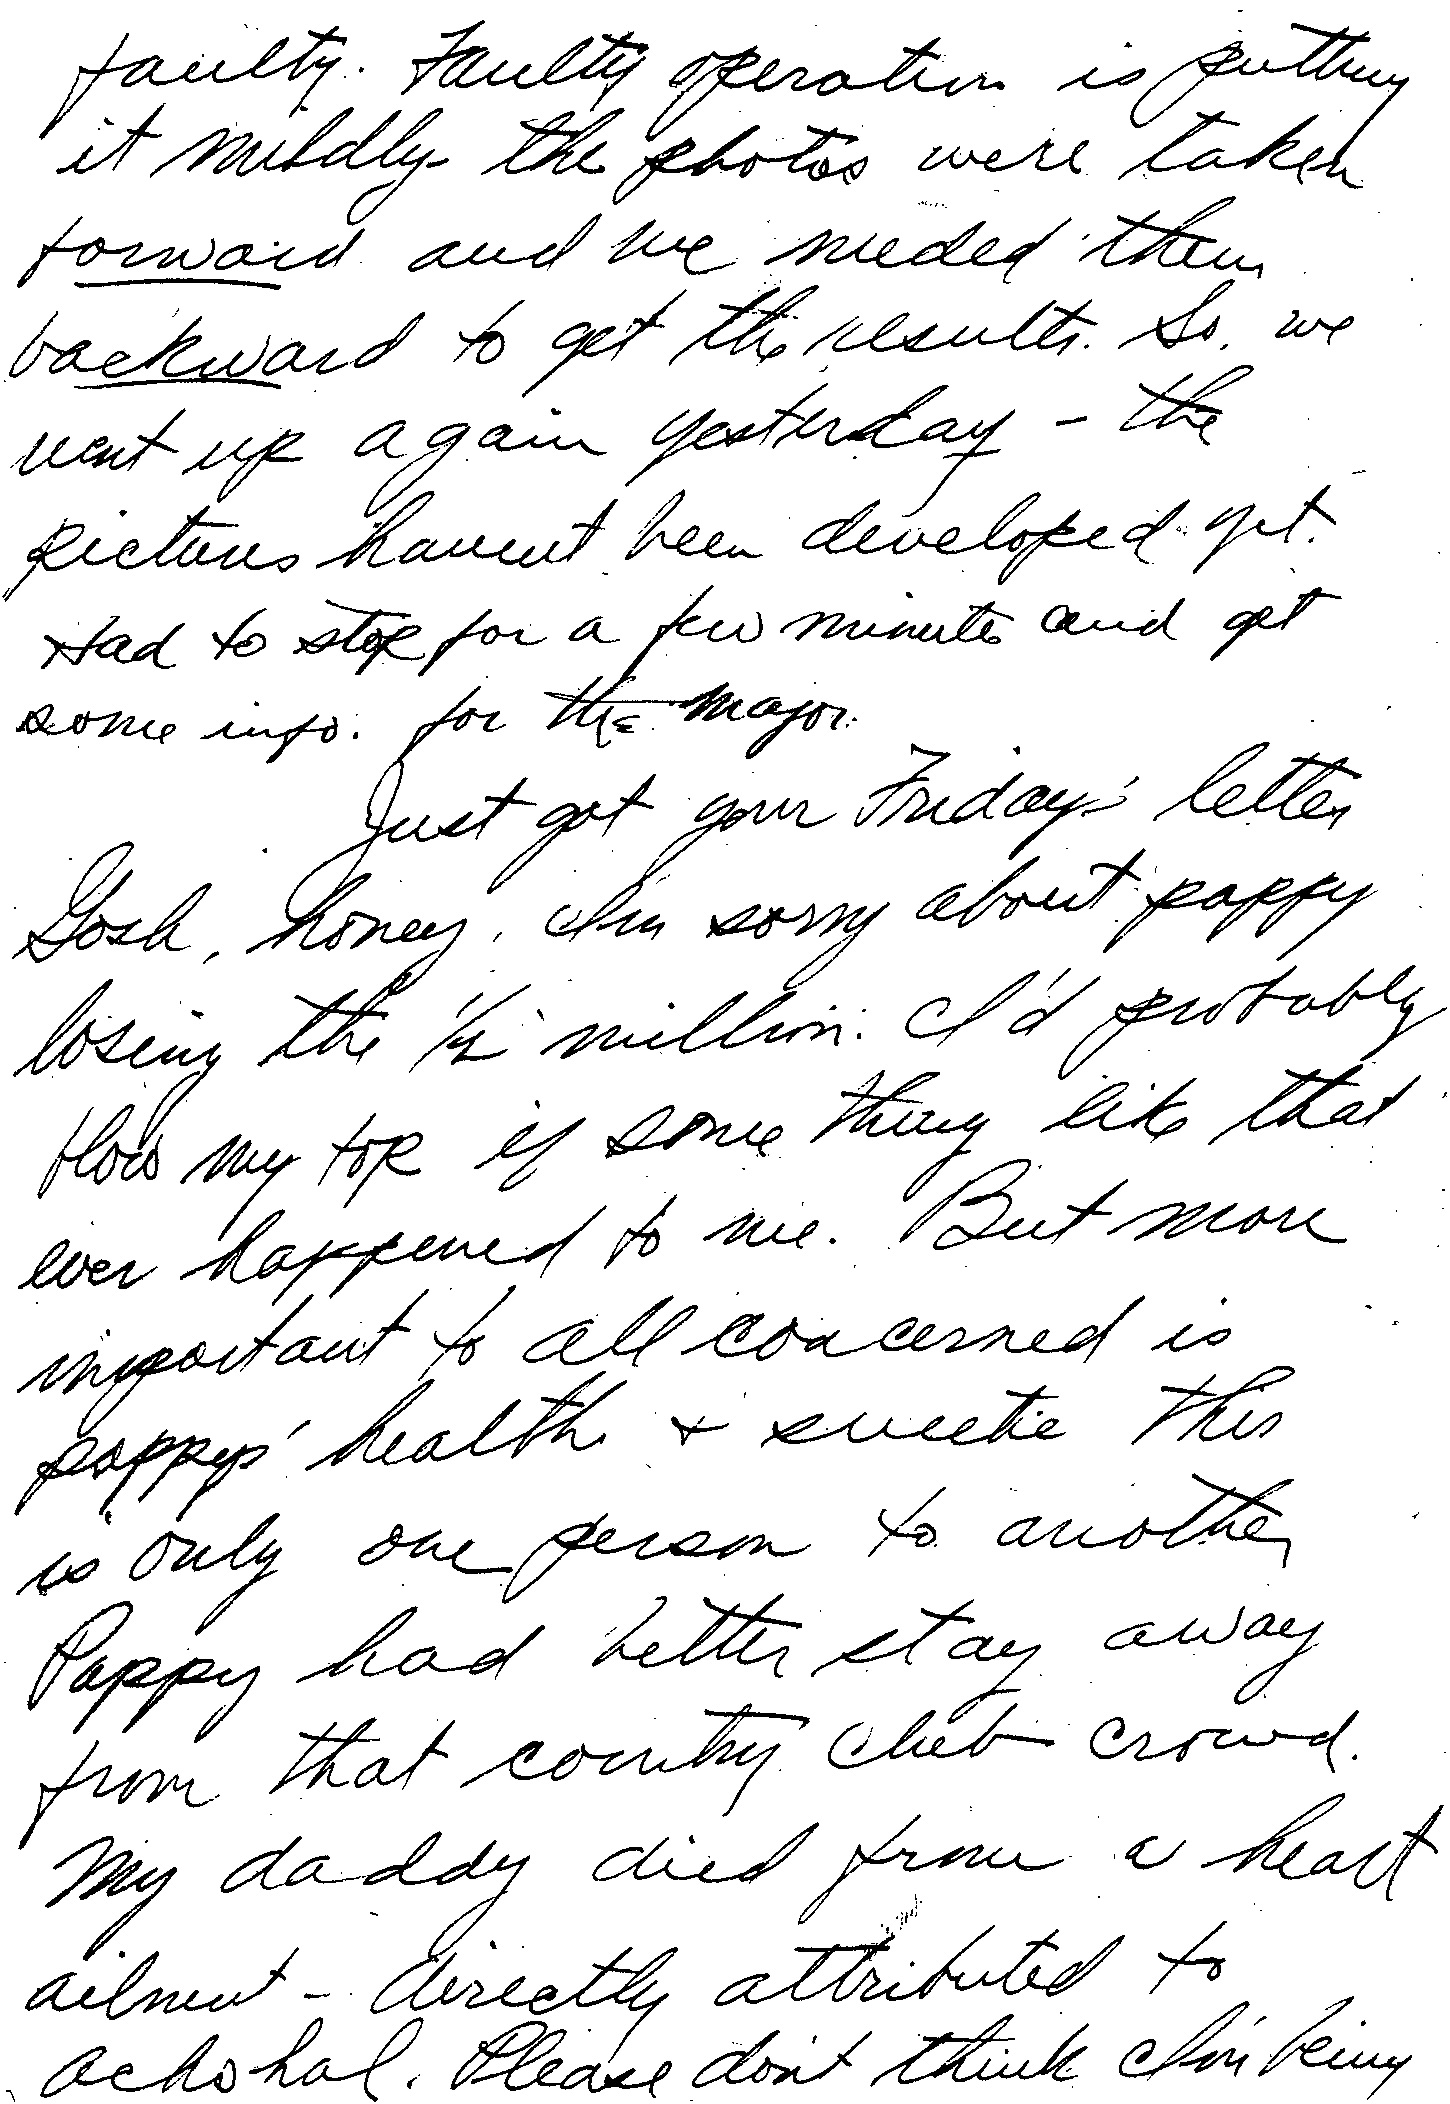 faulty. Faulty operation is putting
it mildly - the photos were taken
forward and we needed them
backward to get the results. So, we
went up again yesterday - the
pictures havent been developed yet.
Had to stop for a few minutes and get
some info. for the major.
Just got your Friday's letter
Gosh, honey, I'm sorry about pappy
losing the 1/2 million. I'd probably
blow my top if some thing like that
ever happened to me. But more
important to all concerned is
pappys' health & sweetie this
is only one person to another
Pappy had better stay away
from that country club crowd.
My daddy died from a heart
ailment - directly attributed to
achohal. Please don't think I'm being